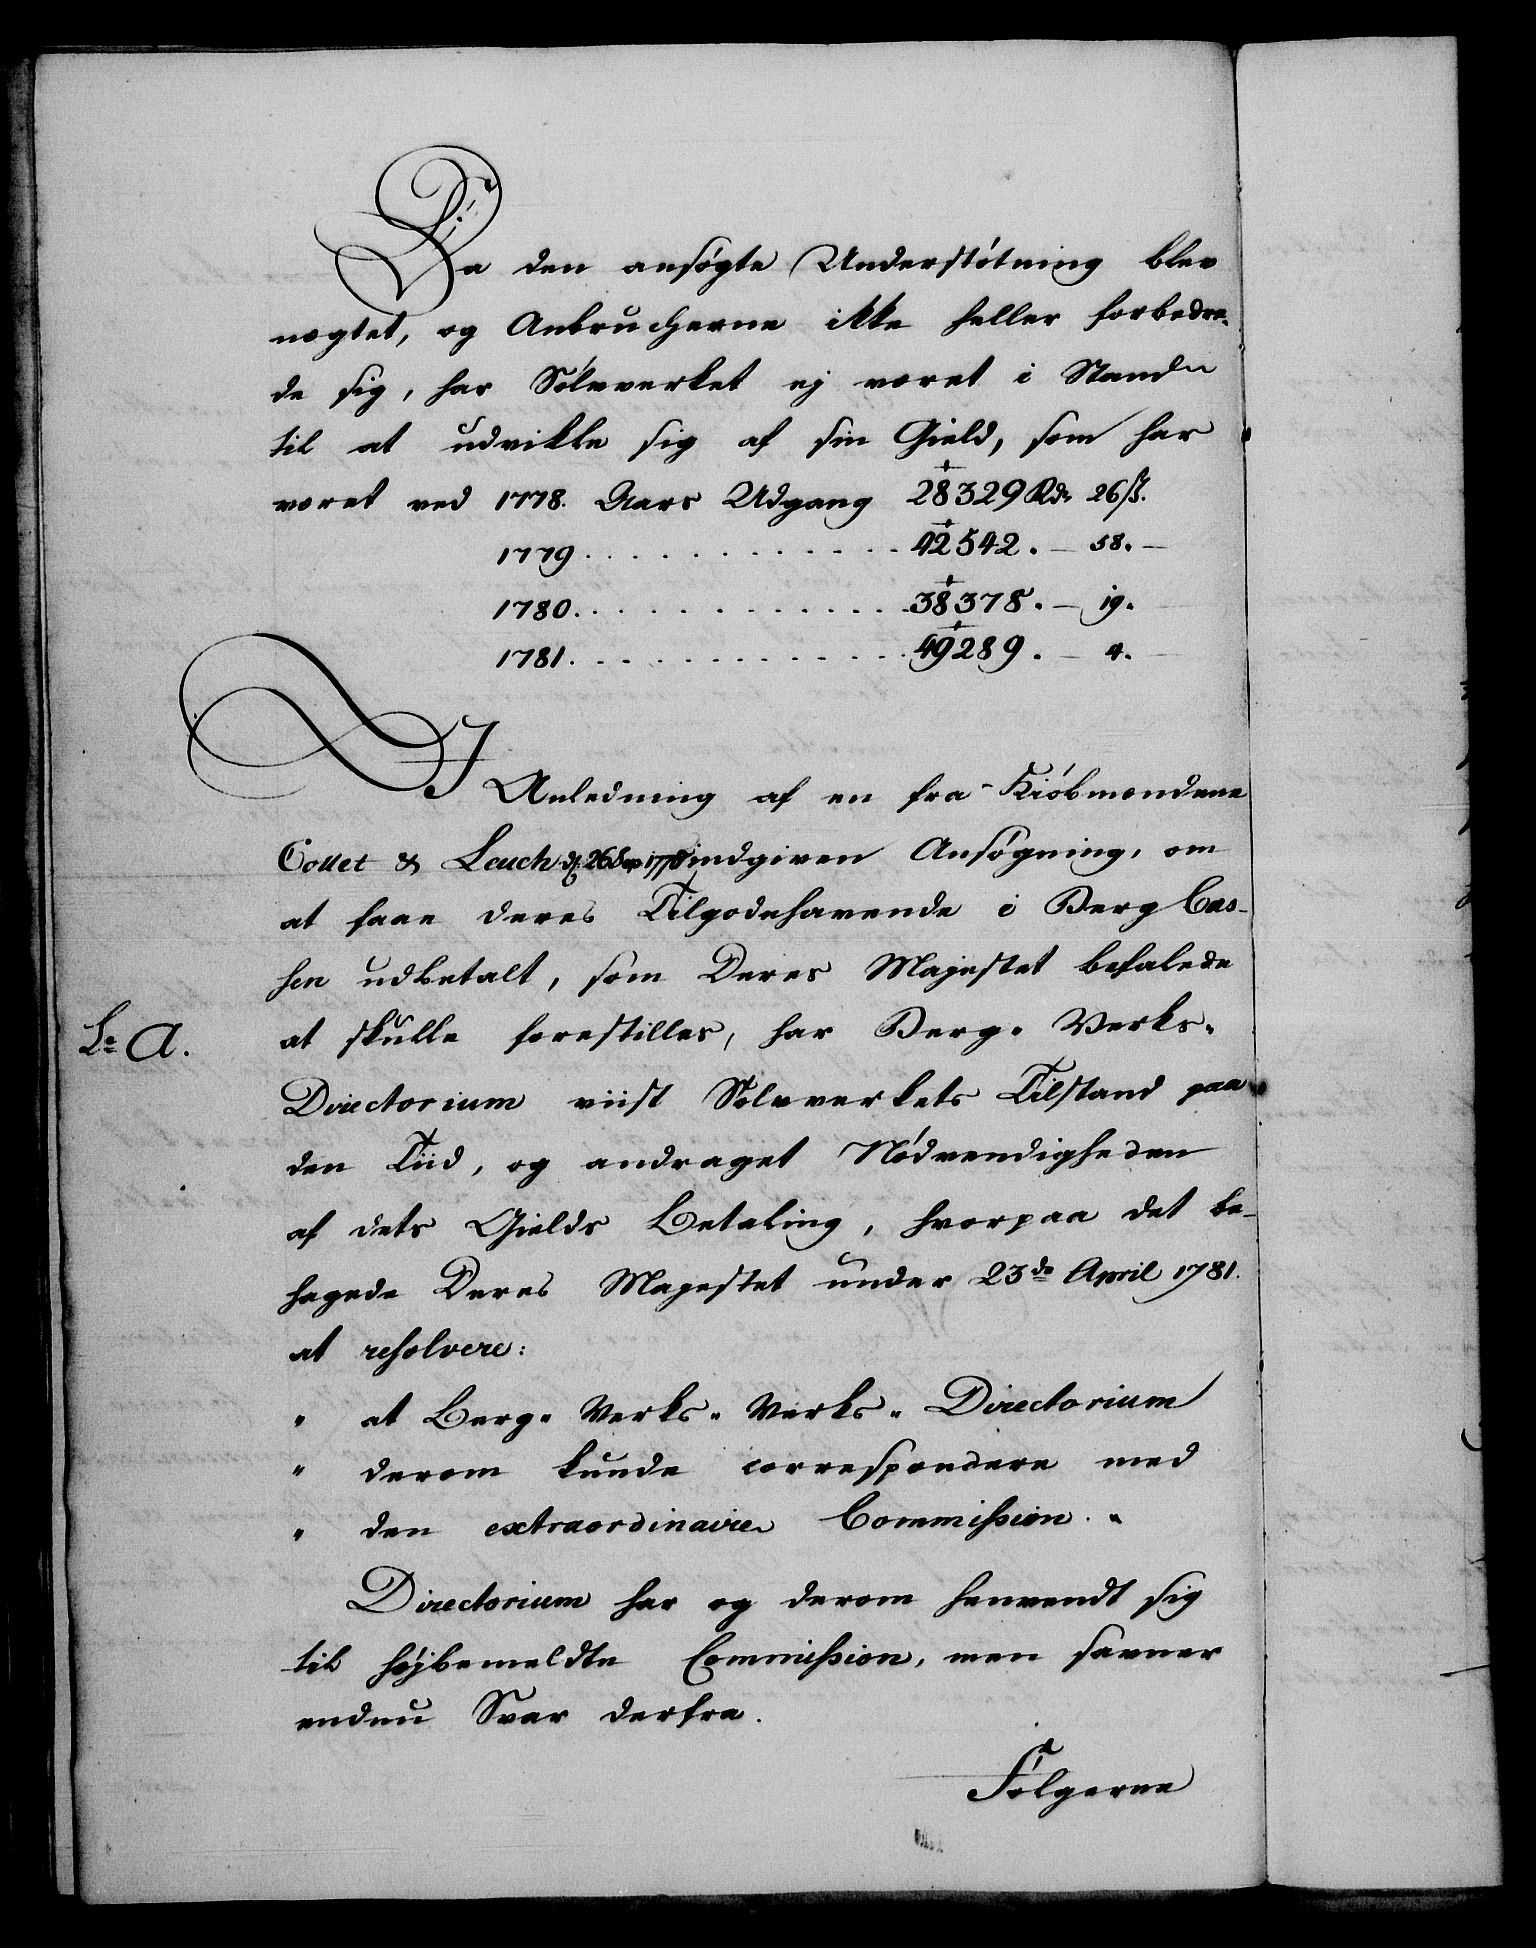 Da den ansøgte Understøtning blev
negtet, og Anbrucherne ikke heller forbedre-
de sig, har Sølvverket ej været i Stand
til at udvikle sig af sin Gield, som har
været ved 1778. Aars Udgang 28329 Rd. 26 ß.
1779 . . . . . . . . . . . . 42542. — 58. —
1780. . . . . . . . . . . . . 38378. — 19. —
1781. . . . . . . . . . . . . 49289. — 4. —
I Anledning af en fra Kiøbmændene
Collet & Leuch d. 26 Sep 1778 indgiven Ansøgning, om
at faae deres Tilgodehavende i Berg Cas-
sen udbetalt, som Deres Majestet befalede
Lr. A.
at skulle forestilles, har Berg- Verks-
Directorium viist Sølvverkets Tilstand paa
den Tiid, og andraget Nødvendigheden
af dets Gields Betaling, hvorpaa det be-
hagede Deres Majestet under 23de April 1781.
at resolvere:
" at Berg- Verks- Verks- Directorium
" derom kunde correspondere med
" den extraordinaire Commission. "
Directorium har og derom henvendt sig
til højbemeldte Commission, men savner
endnu Svar derfra.
Følgerne